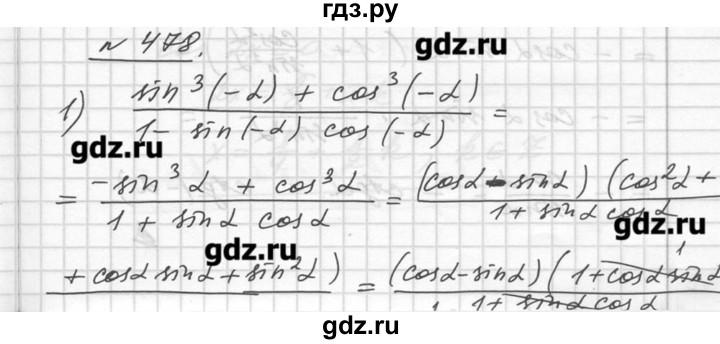 гдз.ру
№ 478.
gdz.ru
1) (sin³(-α) + cos³(-α)) / (1 - sin(-α) cos(-α)) =
gdz.ru
= (-sin³α + cos³α) / (1 + sinα cosα) = (cosα - sinα)(cos²α +
1 + sinα cosα
gdz.ru
gdz.ru
+ cosα sinα + sin²α) = (cosα - sinα)(1 + cosα sinα
1
1 + sinα cosα
gdz.ru